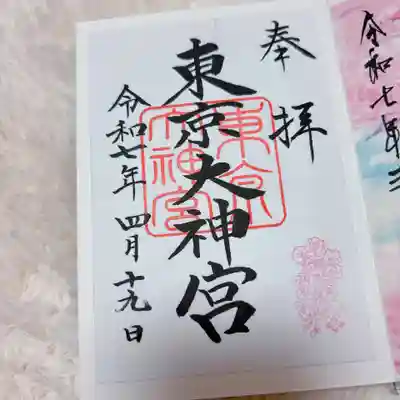 奉拝
東京大神宮
東京大神宮
令和七年 四月 十九日
令和七年三